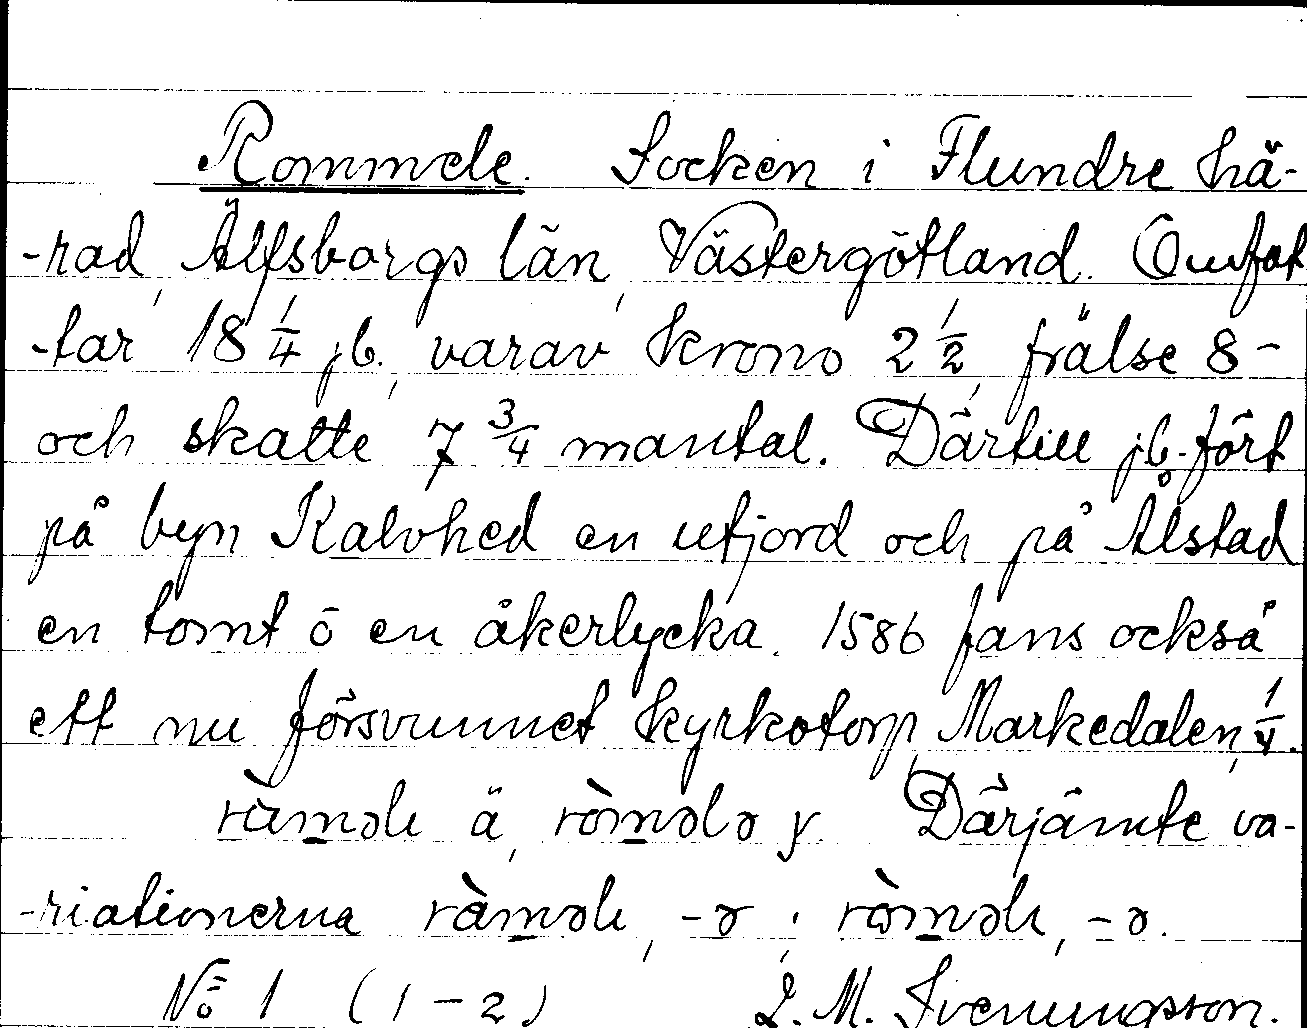 Rommele. Socken i Flundre hä-
-rad, Älfsborgs län, Västergötland. Omfat
-tar 18 1/4 jb., varav krono 2 1/2, frälse 8 -
och skatte 7 3/4 mantal. Därtill jb.-fört
på byn Kalvhed en utjord och på Ålstad
en tomt o en åkerlycka. 1586 fans också
ett nu försvunnet kyrkotorp, Markedalen, 1/4.
ràməle ä, ròmələ y. Därjämte va-
-riationerna ràməle, -ə; ròməle, -ə.
No 1 (1-2) L. M. Svenungsson.